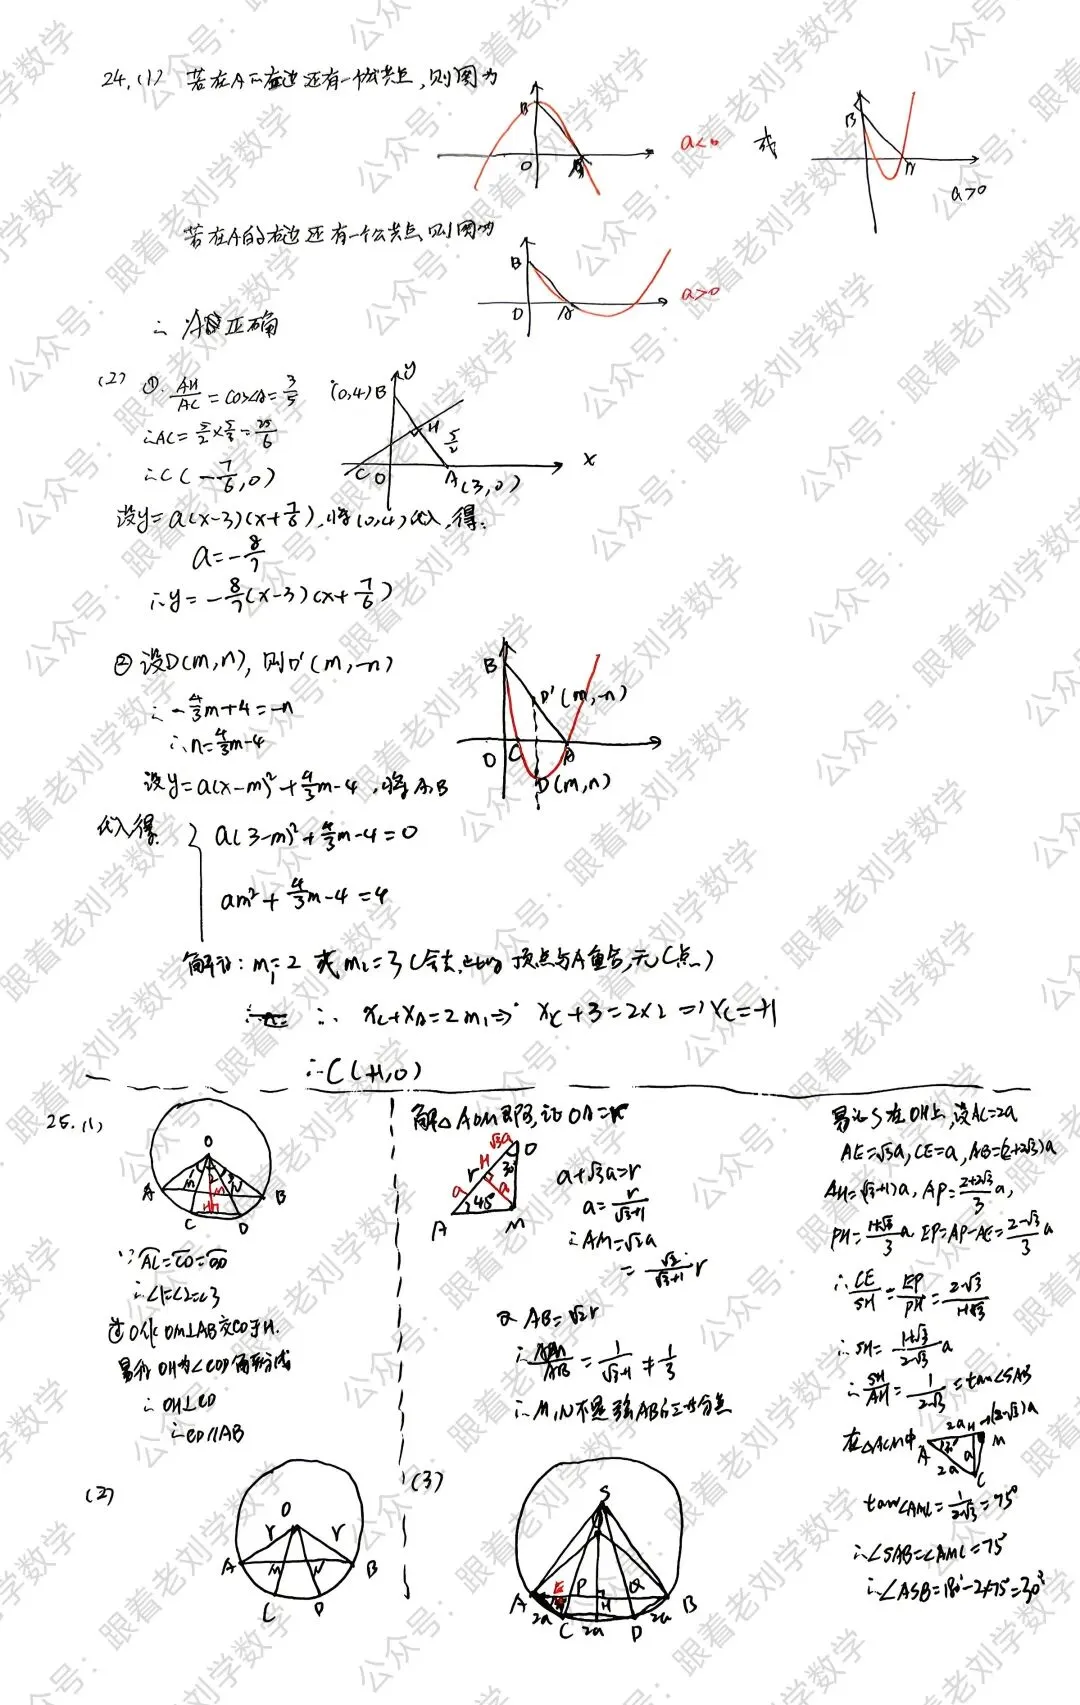 24.(1) 若在A的左边还有一个公共点,则图为
B O A a<0 或 B A a>0
若在A的右边还有一个公共点,则图为
B O A a>0
∴ A 正确
(2) ①. AH/AC = cos∠A = 3/5
(0,4)B y H 5/2 C O A(3,0) x
∴AC = 5/2 × 5/3 = 25/6
∴C(-7/6, 0)
设y = a(x-3)(x+7/6), 将(0,4)代入,得:
a = -8/7
∴y = -8/7(x-3)(x+7/6)
② 设D(m,n), 则D'(m,-n)
∴ -4/3m+4 = -n
∴n = 4/3m-4
B D'(m,-n) O C A D(m,n)
设y = a(x-m)²+4/3m-4, 将A、B
代入得: { a(3-m)²+4/3m-4 = 0
am²+4/3m-4 = 4
解得: m₁ = 2 或 m₂ = 3(舍去, 此时顶点与A重合, 无C点)
∴ xC+xA = 2m₁ ⇒ xC+3 = 2×2 ⇒ xC = +1
∴C(+1,0)
25.(1)
O A M N B C H D
∵ AC = CD = DB
∴∠1=∠2=∠3
过O作OM⊥AB交CD于H.
易得 OH为∠COD角平分线
∴ OH⊥CD
∴CD//AB
(2)
O r r A M N B C D
解△AOM即可, 设OA=r
√3a O H r 30 a a 45° A M
a+√3a=r
a = r/(√3+1)
∴AM = √2a
= √2/(√3+1) r
又 AB = √2r
∴ AM/AB = 1/(√3+1) ≠ 1/3
∴M,N不是弦AB的三等分点
(3)
S A E P H Q B 2a C 2a D 2a
易证S在OH上,设AC=2a
AE=√3a, CE=a, AB=(2+2√3)a
AH=(√3+1)a, AP=(2+2√3)/3 a,
PH=(1+√3)/3 a EP=AP-AE=(2-√3)/3 a
∴ CE/SH = EP/PH = (2-√3)/(1+√3)
∴ SH = (1+√3)/(2-√3) a
∴ SH/AH = 1/(2-√3) = tan∠SAB
在△ACM中 2a H (2-√3)a A 30° a M 2a C
tan∠AMC = 1/(2-√3) = 75°
∴∠SAB=∠AMC=75°
∴∠ASB=180°-2×75°=30°
公众号:跟着老刘学数学